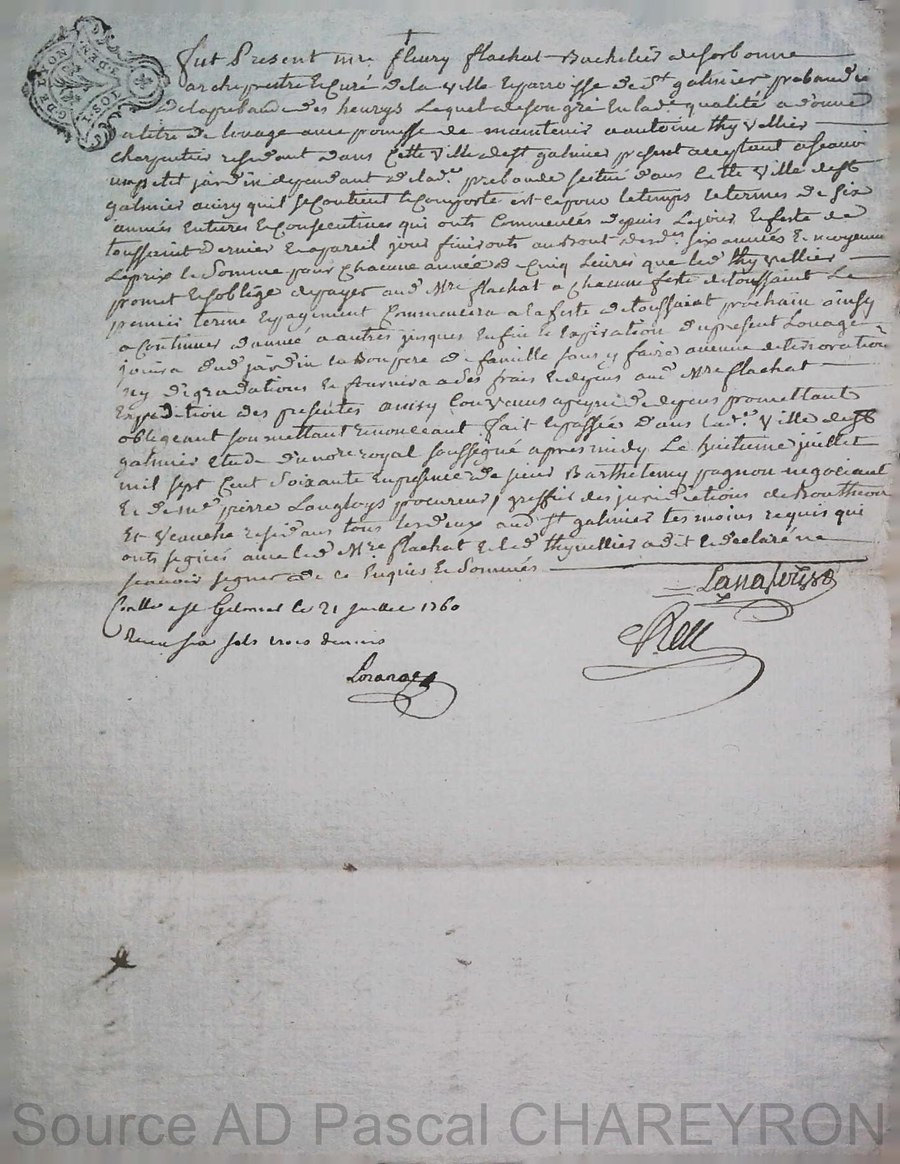 G. DE LYON
1 SOL
fut Present mre fleury flachat Bachelier de sorbonne
archiprestre Et Curé de la ville Et parroisse de st galmier prebandié
de la prebande des henrys Lequel de son gré En lade qualité a donné
a titre de louage avec promesse de maintenir a antoine thyvellier
charpentier residant dans Cette ville de st galmier present acceptant a scavoir
un petit jardin dependant de lade prebande scitué dans Cette ville de st
galmier ainsy quil se Contient Et Comporte Et ce pour le temps Et terme de six
années Entieres Et Consecutives qui onts Commencés depuis Le jour Et feste de
toussaint dernier Et a pareil jour finironts au Bout desdes six années Et moyenant
Le prix Et Somme pour Chacune année de Cinq Livres que led thyvellier
promet Et s'oblige de payer aud Mre flachat a Chacune feste de toussaint Le
premier terme Et payement Commencera a la feste de toussaint prochain ainsy
a Continuer d'année a autres jusques En fin Et Expiration du present Louage
jouira dud jardin En Bon pere de famille sans y faire aucune deteriorations
ny degradations Et fournira a des frais Et depens aud Mre flachat
Expedition des presentes ainsy Convenus a peyne de depens promettant
obligeant soumettant renonceant fait Et passée dans lade ville de st
galmier Etude du nore royal soussigné apres midy Le huitieme juillet
mil sept Cent Soixante En presence de sieur Barthelemy pagnon negociant
Et de me pierre Langloys procureur, greffier des jurisdictions de Bouthéon
Et Veauche residants tous Les deux aud st galmier temoins requis qui
onts signés avec led Mre flachat Et led thyvellier a dit Et declaré ne
scavoir signer de ce Enquis Et Sommés
Conllé a st Galmier le 21 juillet 1760
Receu six sols trois deniers
Source AD Pascal CHAREYRON